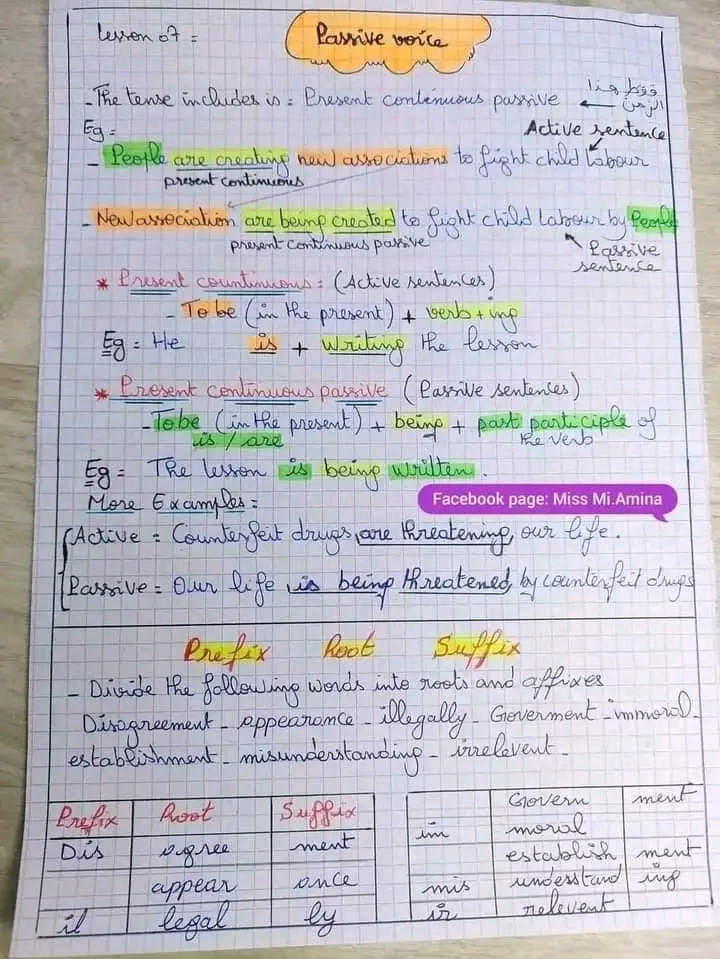 Lesson 07 =
Passive voice
- The tense includes is : Present continuous passive ← فقط هذا الزمن
Eg =
Active sentence
- People are creating new associations to fight child labour
present continuous
- New association are being created to fight child labour by People
present continuous passive
Passive sentence
* Present countinuous : (Active sentences)
- To be (in the present) + verb + ing
Eg = He is + writing the lesson
* Present continuous passive (Passive sentences)
- To be (in the present) + being + past participle of
is / are
the verb
Eg = The lesson is being written.
Facebook page: Miss Mi.Amina
More Examples =
Active = Counterfeit drugs are threatening our life.
Passive = Our life is being threatened by counterfeit drugs
Prefix Root Suffix
- Divide the following words into roots and affixes
Disagreement - appearance - illegally - Goverment - immoral -
establishment - misunderstanding - irrelevent -
Prefix Root Suffix
Dis agree ment
appear ance
il legal ly
Govern ment
im moral
establish ment
mis understand ing
ir relevent